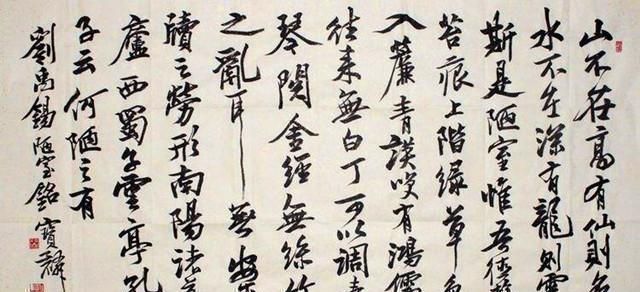 山不在高有仙則名
水不在深有龍則靈
斯是陋室惟吾德馨
苔痕上階綠草色
入簾青談笑有鴻儒
往來無白丁可以調素
琴閱金經無絲竹
之亂耳無案
牘之勞形南陽諸葛
廬西蜀子雲亭孔
子云何陋之有
劉禹錫陋室銘寶麟